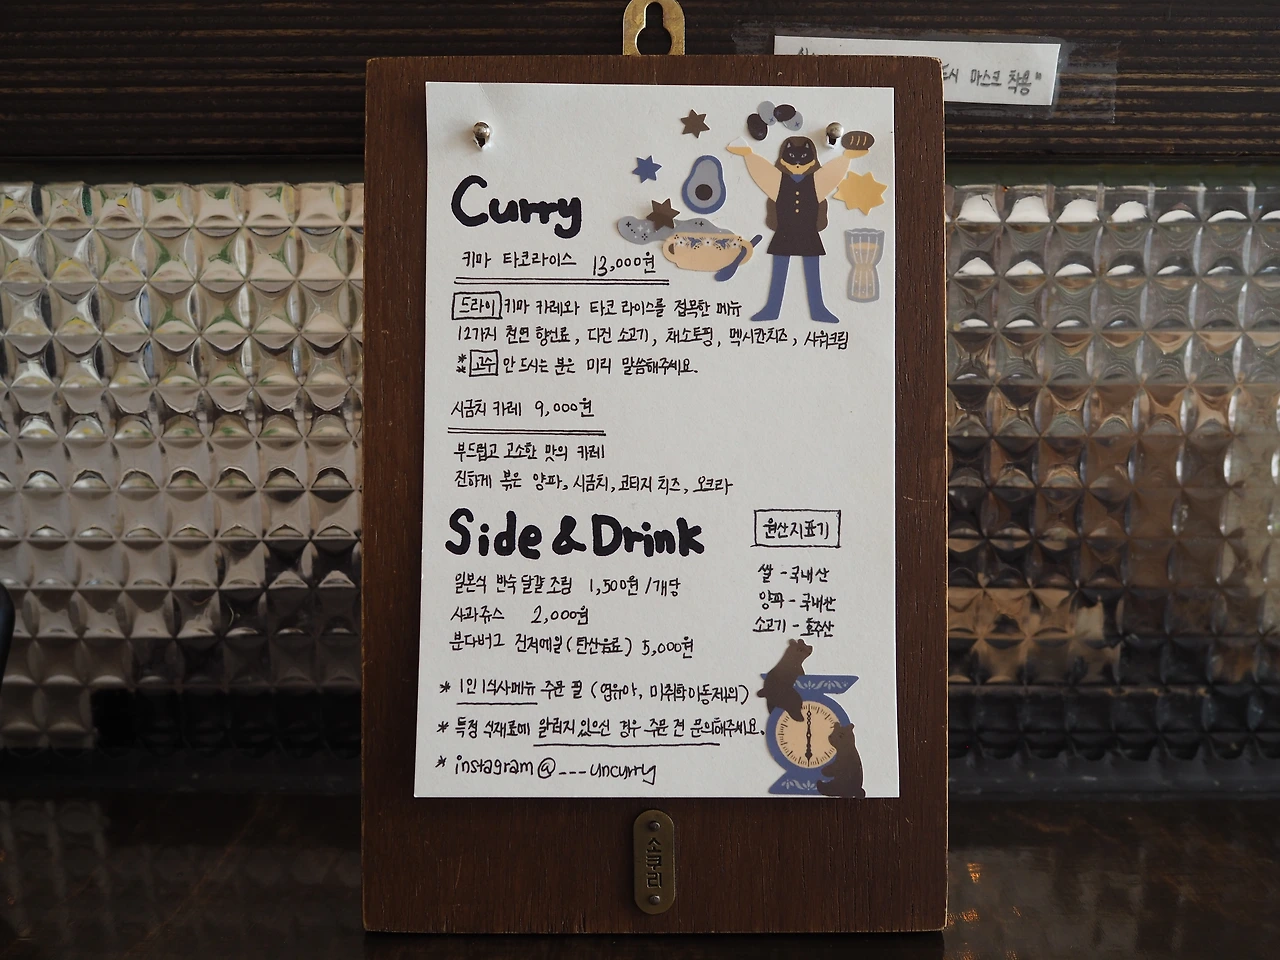 도시 마스크 착용"
Curry
키마 타코라이스 13,000원
드라이 키마 카레와 타코 라이스를 접목한 메뉴
12가지 천연 향신료, 다진 소고기, 채소토핑, 멕시칸치즈, 사워크림
** 고수 안 드시는 분은 미리 말씀해주세요.
시금치 카레 9,000원
부드럽고 고소한 맛의 카레
진하게 볶은 양파, 시금치, 코티지 치즈, 오크라
Side & Drink
일본식 반숙 달걀 조림 1,500원 /개당
사과쥬스 2,000원
분다버그 진저에일 (탄산음료) 5,000원
원산지표기
쌀 - 국내산
양파 - 국내산
소고기 - 호주산
* 1인 1식사메뉴 주문 필 (영유아, 미취학아동제외)
* 특정 식재료에 알러지 있으신 경우 주문 전 문의해주세요.
* instagram @___uncurry
소쿠리